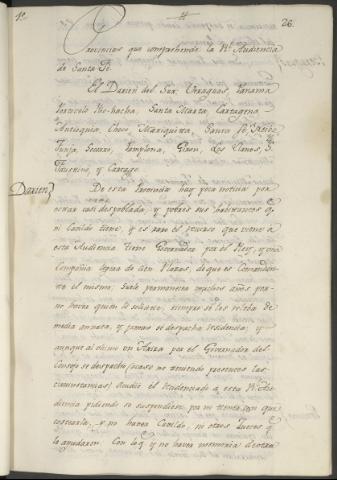 1º
26.
Provincias que comprehende la Rl Audiencia
de Santa Fé
El Darien del Sur, Veraguas, Panama
Portovelo Rio-hacha, Santa Marta, Cartagena
Antioquia, Choco Mariquita, Santa Fé,
Tunja, Socorro, Pamplona, Giron, Los Llanos, Sn
Faustino, y Cartago
Darien
De esta Provincia hay poca noticia por
estar casi despoblada, y pobres sus habitantes q.
ni Cavildo tiene, y es raro el recurso que viene a
esta Audiencia tiene Governador por el Rey, y una
Compañia de cien Plazas, de que es Comandan
te el mismo, suele permanecer muchos años por
no haver quien lo solicite, siempre se les releba de
media annata, y jamas se despacha residencia; y
aunque al ultimo en Ariza por el Governador del
Consejo se despacho (acaso no teniendo presentes las
circunstancias) acudió el Residenciado a esta Rl Au
diencia pidiendo se suspendiese por no tener con que
costearla, y no haver Cavildo, ni otros Jueces q.
la ayudasen. Con lo q. y no haver memoria de otra